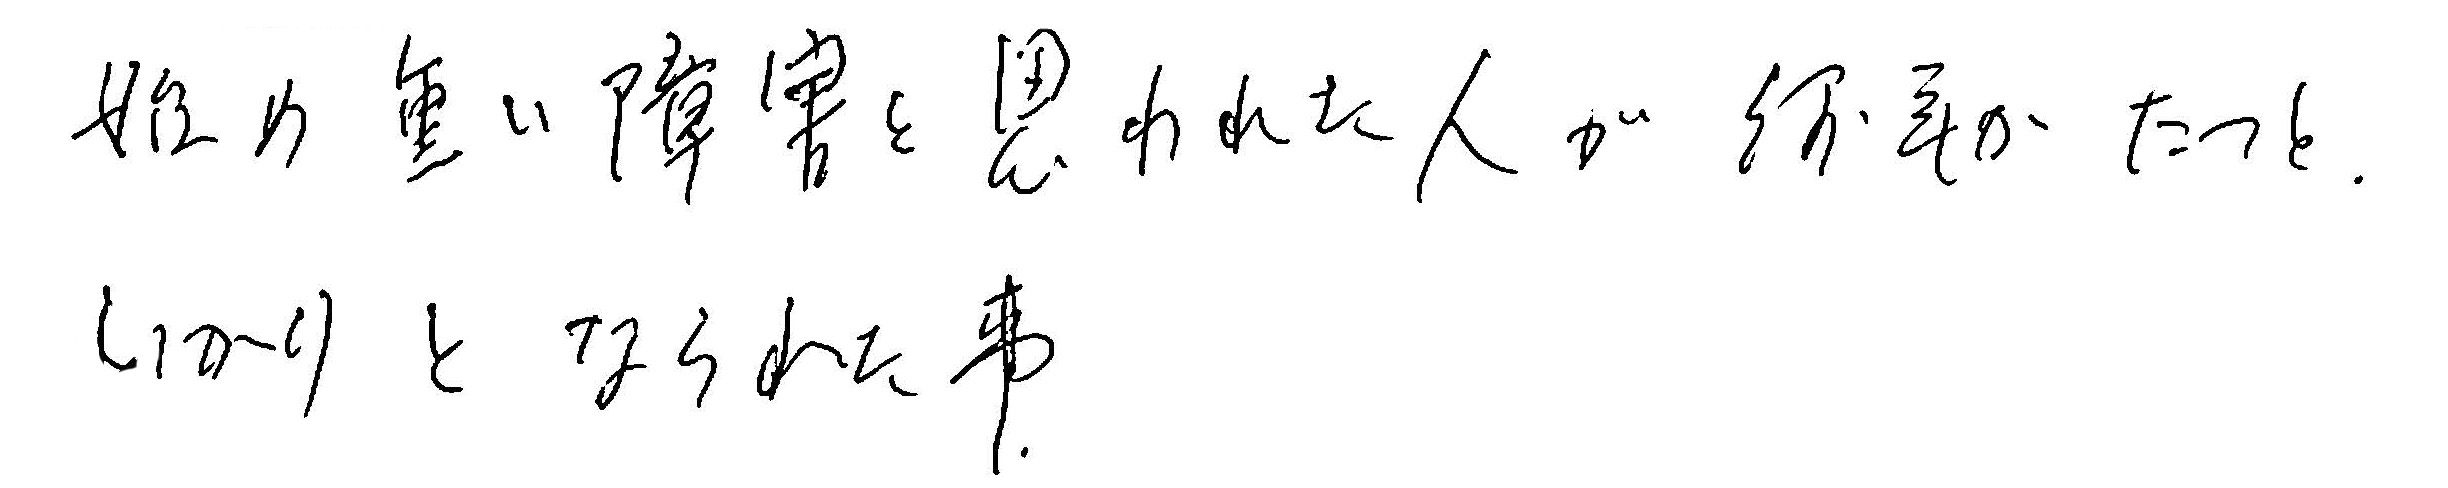 始め重い障害と思われた人が何年かたつと.
しっかりとなられた事.